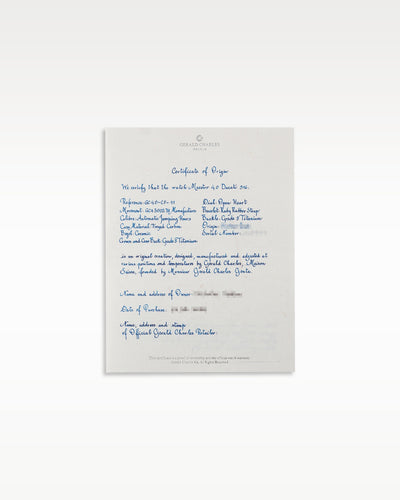 GERALD CHARLES
Certificate of Origin
We certify that the watch Maestro 4.0 Ducati 30.
Reference: GC4.0-CF-01
Movement: Manufacture
Calibre Automatic Jumping Hours
Case Material: Forged Carbon
Bezel: Ceramic
Crown and Case Back: Grade 5 Titanium
Dial: Open Heart
Bracelet: Ruby Rubber Strap
Buckle: Grade 5 Titanium
Origin:
Serial Number:
is an original creation, designed, manufactured and adjusted at
various positions and temperatures by Gerald Charles, Maison
Suisse, founded by Monsieur Gérald Charles Genta.
Name and address of Owner:
Date of Purchase:
Name, address and stamp
of Official Gerald Charles Retailer: